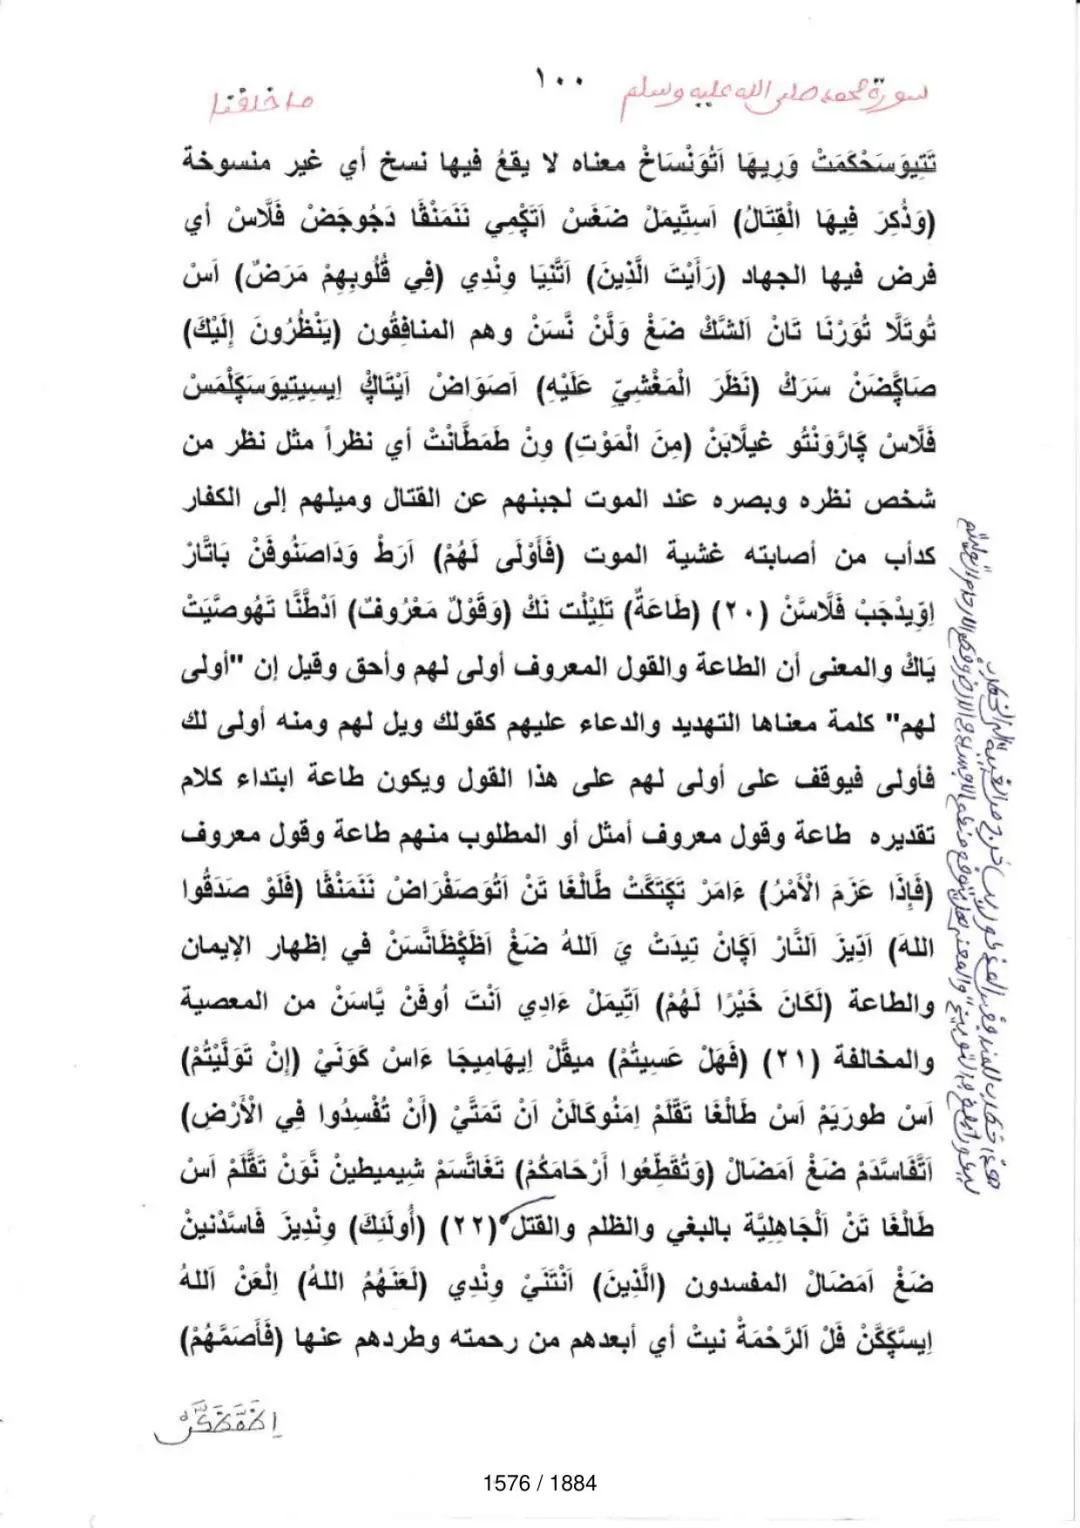 ما خلقنا ١٠٠ سورة محمد صلى الله عليه وسلم
تَتِيوَسَحْكَمَتْ وَرِيهَا اَتُوَنْسَاخْ معناه لا يقعُ فيها نسخ أي غير منسوخة
(وَذُكِرَ فِيهَا الْقِتَالُ) اَسِتِّيمَلْ ضَغَسْ اَتَكْمِي نَنَمَنْقَا دَجُوجَضْ فَلَّاسْ أي
فرض فيها الجهاد (رَأَيْتَ الَّذِينَ) اَتَّنِيَا وِنْدِي (فِي قُلُوبِهِمْ مَرَضٌ) اَسْ
تُوتَلَّا تُوَرْنَا تَانْ اَلشَّكْ ضَغْ وَلَّنْ نَّسَنْ وهم المنافِقُون (يَنْظُرُونَ إِلَيْكَ)
صَاكَّضَنْ سَرَكْ (نَظَرَ الْمَغْشِيِّ عَلَيْهِ) اَصَوَاضْ اَيْتَاكْ اِيسِيتِيوَسَكَلْمَسْ
فَلَّاسْ كَارَّوَنْتُو غيلَابَنْ (مِنَ الْمَوْتِ) وِنْ طَمَطَّانْتْ أي نظراً مثل نظر من
شخص نظره وبصره عند الموت لجبنهم عن القتال وميلهم إلى الكفار
كدأب من أصابته غشية الموت (فَأَوْلَى لَهُمْ) اَرَطْ وَدَاصَنُوفَنْ بَاتَّارْ
اِوِيدْجَبْ فَلَّاسَّنْ (٢٠) (طَاعَةٌ) تَلِيْلْت نَكْ (وَقَوْلٌ مَعْرُوفٌ) اَدْطَّنَّا تَهُوصَّيَتْ
يَاكْ والمعنى أن الطاعة والقول المعروف أولى لهم وأحق وقيل إن "أولى
لهم" كلمة معناها التهديد والدعاء عليهم كقولك ويل لهم ومنه أولى لك
فأولى فيوقف على أولى لهم على هذا القول ويكون طاعة ابتداء كلام
تقديره طاعة وقول معروف أمثل أو المطلوب منهم طاعة وقول معروف
(فَإِذَا عَزَمَ الْأَمْرُ) ءَامَرْ تَكْتَكَّتْ طَالْغَا تَنْ اَتُوَصَفْرَاضْ نَنَمَنْقَا (فَلَوْ صَدَقُوا
اللهَ) اَدِّيزَ اَلنَّارْ اَكَانْ تِيدَتْ يَ اَللهُ ضَغْ اَظَكْظَانَّسَنْ في إظهار الإيمان
والطاعة (لَكَانَ خَيْرًا لَهُمْ) اَتِّيمَلْ ءَادِي اَنْتَ أُوفَنْ يَّاسَنْ من المعصية
والمخالفة (٢١) (فَهَلْ عَسِيتُمْ) ميقَلْ اِيهَامِيجَا ءَاسْ كَوَنَيْ (إِنْ تَوَلَّيْتُمْ)
اَسْ طورَيَمْ اَسْ طَالْغَا تَقْلَمْ اِمَنُوكَالَنْ اَنْ تَمَتَّيْ (أَنْ تُفْسِدُوا فِي الْأَرْضِ)
اَتَّفَاسَّدَمْ ضَغْ اَمَضَالْ (وَتُقَطِّعُوا أَرْحَامَكُمْ) تَغَاتَّسَمْ شِيمِيطِينْ نَّوَنْ تَقَّلَمْ اَسْ
طَالْغَا تَنْ اَلْجَاهِلِيَّة بالبغي والظلم والقتل (٢٢) (أُولَئِكَ) وِنْدِيزَ فَاسَّدْنينْ
ضَغْ اَمَضَالْ المفسدون (الَّذِينَ) اَنْتَنَيْ وِنْدِي (لَعَنَهُمُ اللهُ) اِلْعَنْ اَللهُ
اِيسَّكَكَنْ فَلْ اَلرَّحْمَةُ نيتْ أي أبعدهم من رحمته وطردهم عنها (فَأَصَمَّهُمْ)
1576 / 1884